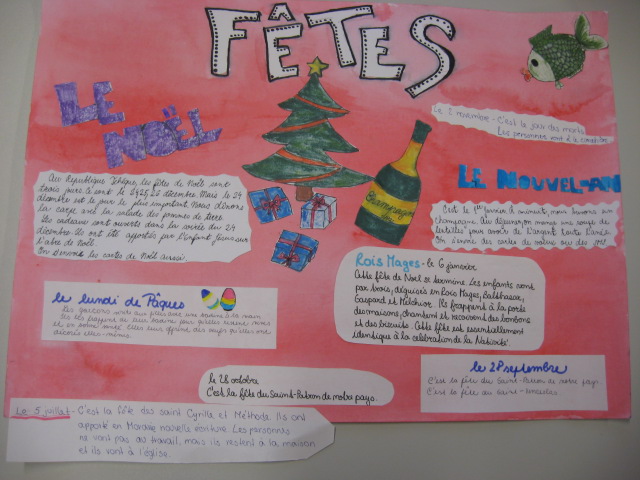 FÊTES
LE NOËL
Au République Tchèque, les fêtes de Noël sont
trois jours. Ce sont le 24,25,26 décembre. Mais le 24
décembre est le jour le plus important. Nous dînons
la carpe avec la salade des pommes de terre.
Les cadeaux sont ouverts dans la soirée du 24
décembre. Ils ont été apportés par l'Enfant Jésus sur
l'abre de Noël.
On donne les cartes de Noël aussi.
Champagne
Le 2 novembre - C'est le jour des morts.
Les personnes vont à le cimetière
LE NOUVEL-AN
C'est le 1er janvier. A minuit, nous buvons au
champagne. Au déjeuner, on mange une soupe de
lentilles pour avoir de l'argent toute l'année.
On envoie des cartes de vœux ou des
Rois Mages - le 6 janvier
Cette fête de Noël se termine. Les enfants vont
par trois, déguisés en Rois Mages, Balthasar,
Gaspard et Melchior. Ils frappent à la porte
des maisons, chantent et reçoivent des bonbons
et des biscuits. Cette fête est essentiellement
identique à la celebration de la Nativité.
le lundi de Pâques
Les garçons vont aux filles avec une badine à la main.
et en bonne santé. Elles leur offrent des œufs qu'elles ont
décorés elles-mêmes.
le 28 octobre
C'est la fête du Saint-Patron de notre pays.
le 28 septembre
C'est la fête du Saint-Patron de notre pays.
C'est la fête du Saint-Venceslas
Le 5 juillet - C'est la fête des saint Cyrille et Méthode. Ils ont
apporté en Moravie nouvelle écriture. Les personnes
ne vont pas au travail, mais ils restent à la maison
et ils vont à l'église.